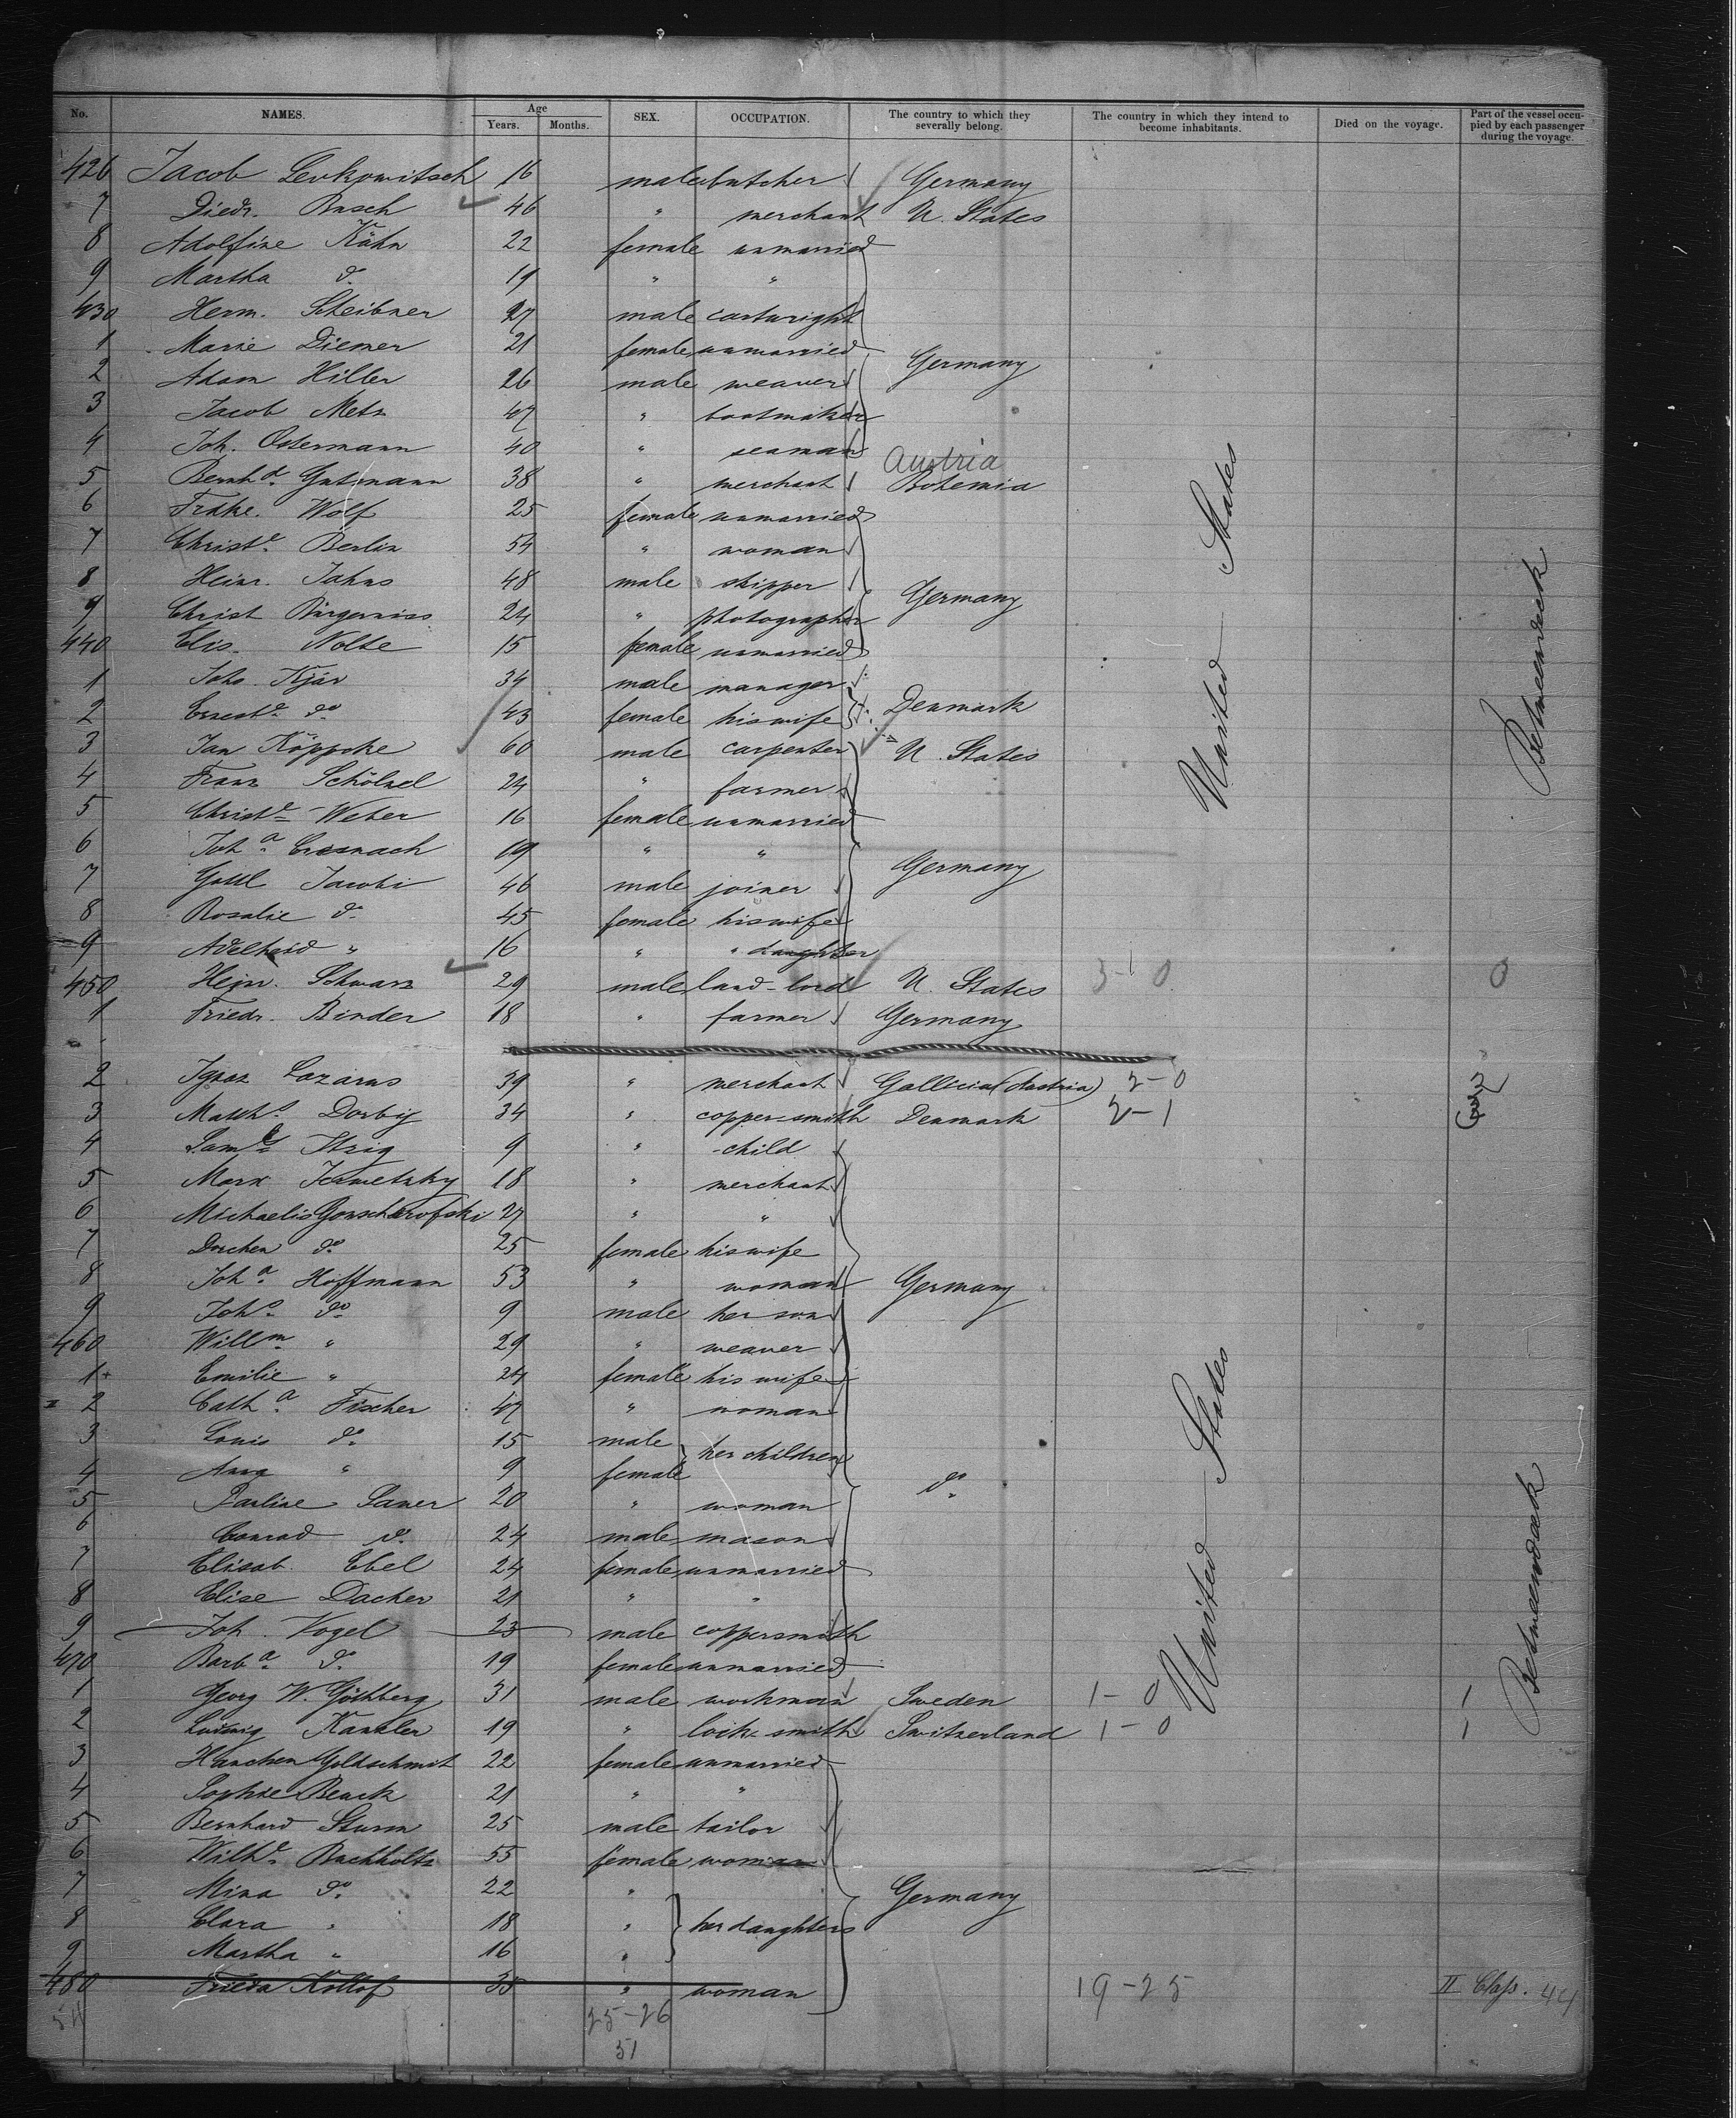 No. NAMES. Age Years. Months. SEX. OCCUPATION. The country to which they severally belong. The country in which they intend to become inhabitants. Died on the voyage. Part of the vessel occupied by each passenger during the voyage.
426 Jacob Levkowitsch 16 male butcher Germany
7 Diedr. Busch 46 " merchant U. States
8 Adolfine Kähn 22 female unmarried
9 Martha do. 19 " "
430 Herm. Scheibner 27 male cartwright
1 Marie Diemer 21 female unmarried
2 Adam Hiller 26 male weaver Germany
3 Jacob Metz 47 " bootmaker
4 Joh. Ostermann 40 " seaman
Austria
5 Bernhd. Gutmann 38 " merchant Bohemia
6 Frdke. Wolf 25 female unmarried
7 Christe. Berlin 54 " woman
8 Heinr. Jahns 48 male skipper Germany
9 Christ Bürgerniss 24 " photographer
440 Elis. Nolte 15 female unmarried
1 Johs. Kjär 34 male manager
2 Erneste. do 43 female his wife Denmark
3 Jan Köppcke 60 male carpenter U. States
4 Franz Schölzel 24 " farmer
5 Christe. Weber 16 female unmarried
6 Joha. 19 " "
7 Gottl Jacobi 46 male joiner Germany
8 Rosalie do. 45 female his wife
9 Adelheid " 16 " " daughter
450 Heinr. Schwarz 29 male land-lord U. States 3-1 0 0
1 Friedr. Binder 18 " farmer Germany
United States
Betweendeck
2 Ignaz Lazarus 39 " merchant Gallicia (Austria) 2-0
3 Matths. Dorbig 34 " copper-smith Denmark 2-1
4 Saml. Itzig 9 " child
5 Marx 18 " merchant
6 Michaelis Gonscherofski 27 " "
7 Dorchen do 25 female his wife
8 Joha. Hoffmann 53 " woman Germany
9 Johs. do 9 male her son
460 Willm. " 29 " weaver
1 Emilie " 24 female his wife
2 Catha. Fischer 47 " woman
3 Louis do. 15 male her children
4 Anna " 9 female
5 Pauline Sauer 20 " woman do.
6 Conrad do. 24 male mason
7 Elisab. Ebel 24 female unmarried
8 Elise Dacher 21 " "
9 Joh. Vogel 23 male coppersmith
470 Barba. do. 19 female unmarried
1 Georg W. Göthberg 31 male workman Sweden 1-0 1
2 Ludwig Kanzler 19 " lock-smith Switzerland 1-0 1
3 Hanchen Goldschmit 22 female unmarried
4 Sophie Benck 21 " "
5 Bernhard Sturm 25 male tailor
6 Wilhe. Buchholtz 55 female woman
7 Mina do. 22 " Germany
8 Clara " 18 " her daughters
9 Martha " 16 "
480 Frieda Kollof 35 " woman 19-25 II Class. 44
54 25-26
51
United States
Betweendeck